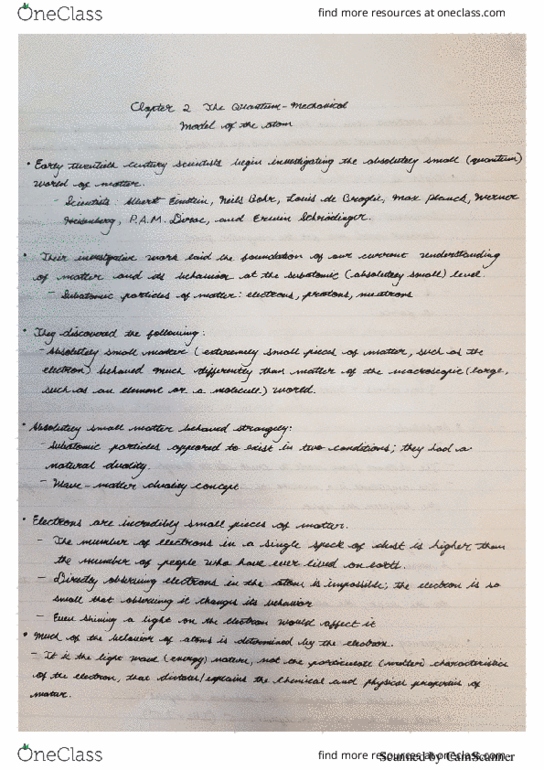 OneClass
find more resources at oneclass.com
Chapter 2 The Quantum-Mechanical
Model of the atom
• Early twentieth century scientists begin investigating the absolutely small (quantum)
world of matter.
- Scientists: Albert Einstein, Neils Bohr, Louis de Broglie, Max Planck, Werner
Heisenberg, P.A.M. Dirac, and Erwin Schrödinger.
• Their investigative work laid the foundation of our current understanding
of matter and its behavior at the subatomic (absolutely small) level.
- Subatomic particles of matter: electrons, protons, neutrons
• They discovered the following:
- Absolutely small matter (extremely small pieces of matter, such as the
electron) behaved much differently than matter of the macroscopic (large,
such as an element or a molecule) world.
• Absolutely small matter behaved strangely:
- Subatomic particles appeared to exist in two conditions; they had a
natural duality.
- Wave-matter duality concept
• Electrons are incredibly small pieces of matter.
- The number of electrons in a single speck of dust is higher than
the number of people who have ever lived on earth.
- Directly observing electrons in the atom is impossible; the electron is so
small that observing it changes its behavior
- Even shining a light on the electron would affect it
• Much of the behavior of atoms is determined by the electron.
- It is the light wave (energy) nature, not the particulate (matter) characteristics
of the electron, that dictates/explains the chemical and physical properties of
matter.
OneClass
find more resources at oneclass.com
Scanned by CamScanner